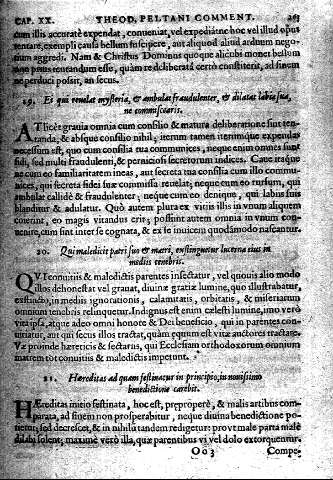 CAP. XX. THEOD. PELTANI COMMENT.
cum illis accuratè expendat, conueniat, vel expediatne hoc vel illud opus
tentare, exempli causa bellum suscipere, aut aliquod aliud arduum nego-
tium aggredi. Nam & Christus Dominus quoque alicubi monet bellum
non prius tentandum esse, quàm re deliberata certò constiterit, ad finem
ne perduci possit, an secus.
19. Ei qui reuelat mysteria, & ambulat fraudulenter, & dilatat labia sua,
ne commiscearis.
ALlicet grauia omnia cum consilio & matura deliberatione sint ten-
tanda, & absque consilio nihil; iterum tamen iterumque expendas
necessum est, quo cum consilia tua communices, neque enim omnes sunt
fidi, sed multi fraudulenti, & perniciosi secretorum indices. Caue itaque
ne cum eo familiaritatem ineas, aut secreta tua consilia cum illo commu-
nices, qui secreta fidei suæ commissa reuelat; neque cum eo rursum, qui
ambulat callidè & fraudulenter; neque cum eo denique, qui labiis suis
blanditur & adulatur. Quò autem plura ex vitiis illis in vnum aliquem
coierint, eo magis vitandus erit; possunt autem omnia in vnum con-
uenire, cum sint inter se cognata, & ex se inuicem quodammodo nascantur.
20. Qui maledicit patri suo & matri, exstinguetur lucerna eius in
mediis tenebris.
QVi conuitiis & maledictis parentes insectatur, vel quouis alio modo
illos dehonestat vel grauat, diuinæ gratiæ lumine, quo illustrabatur,
exstincto, in mediis ignorationis, calamitatis, orbitatis, & miseriarum
omnium tenebris relinquetur. Indignus est enim cælesti lumine, imo verò
vita ipsa, atque adeo omni honore & Dei beneficio, qui in parentes con-
uitiatur, aut qui secus illos tractat, quàm equum est vitæ auctores tractare.
Væ proinde hæreticis & sectariis, qui Ecclesiam orthodoxorum omnium
matrem tot conuitiis & maledictis impetunt.
21. Hæreditas ad quam festinatur in principio, in nouissimo
benedictione carebit.
HÆreditas initio festinata, hoc est, præproperè, & malis artibus com-
parata, ad finem non prosperabitur, neque diuina benedictione po-
tietur, sed decrescet, & in nihilū tandem redigetur: prout malè parta malè
dilabi solent; maximè verò illa, quæ parentibus vi vel dolo extorquentur.
Oo 3 Compe-